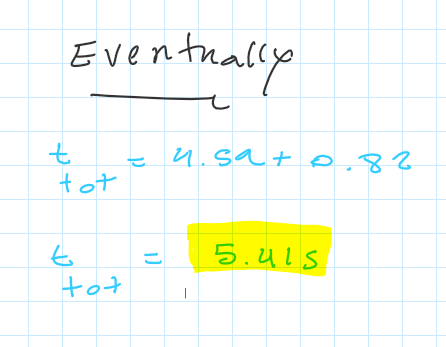 Eventually
t tot = 4.59 + 0.82
t tot = 5.41s